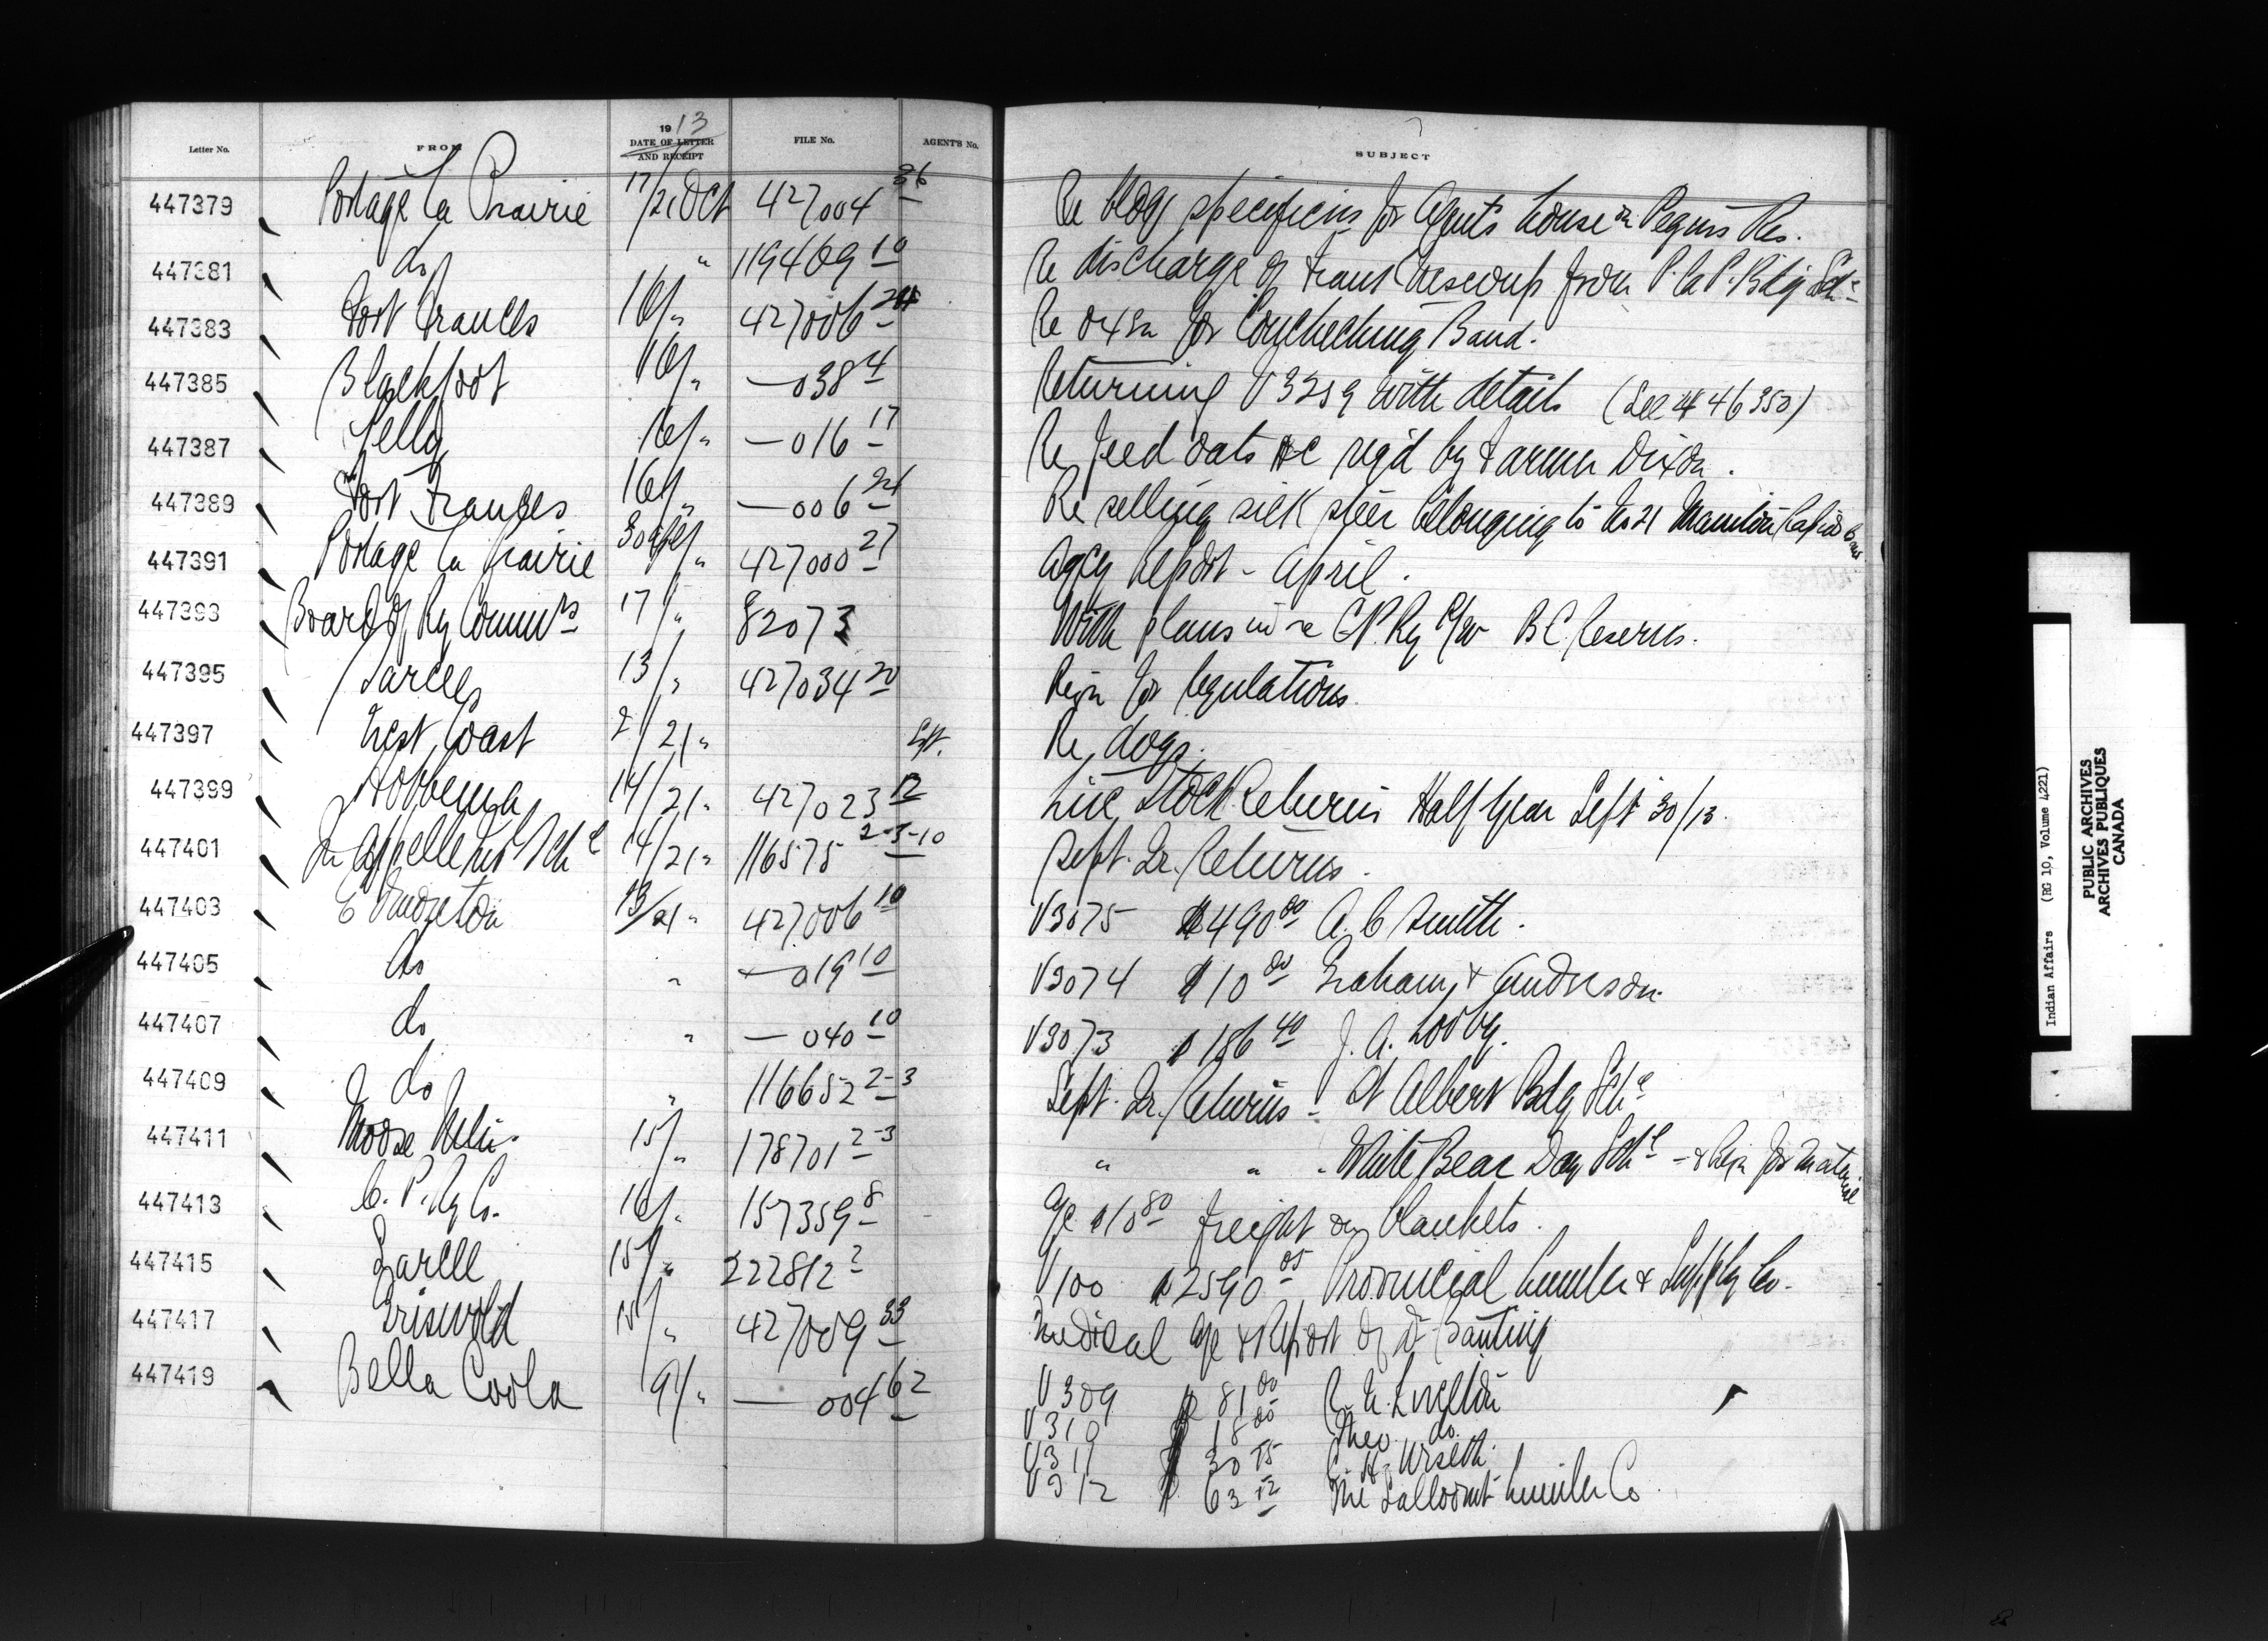 Letter No. FROM 1913 DATE OF LETTER AND RECEIPT FILE No. AGENT'S No. SUBJECT
447379 Portage la Prairie 17/21 Oct 427004 36 Re bldg specificns for Agent's house on Peguis Res.
447381 do " 119469 10 Re discharge of from P. la P. Bdg Sch
447383 Fort Frances 16/ " 427006 24 Re oxen for Couchiching Band.
447385 Blackfoot 16/ " —038 4 Returning V3259 with details (See 446350)
447387 Pelly 16/ " —016 17 Re feed oats &c req'd by Farmer Dixon.
447389 Fort Frances 16/ " —006 24 Re selling sick steer belonging to No 21 Manitou Rapids Band
447391 Portage la Prairie 30 Apl/ " 427000 27 Agcy Report - April.
447393 Board of Ry Commrs 17/ " 82073 With plans in re C.P. Ry R/W B.C. Reserves.
447395 Sarcee 13/ " 427034 20 Reqn for regulations.
447397 West Coast 2/21 " Sept. Re dogs.
447399 Hobbema 14/21 " 427023 12 Live Stock Returns Half Year Sept 30/13.
447401 Qu'Appelle Ind Schl 14/21 " 116575 2-3-10 Sept. Qr. Returns.
447403 Edmonton 13/21 " 427006 10 V3075 $490 00 A. C. Smith.
447405 do " —019 10 V3074 $10 00 Graham & Anderson.
447407 do " —040 10 V3073 $186 40 J. A. Looby.
447409 do " 116652 2-3 Sept. Qr. Returns - St Albert Bdg Schl
447411 Moose Mtn. 15/ " 178701 2-3 " " " White Bear Day Schl - & Reqn for material
447413 C. P. Ry Co. 16/ " 157359 8 a/c $10 80 freight on blankets.
447415 Sarcee 15/ " 222812 2 V100 $2590 05 Provincial Lumber & Supply Co.
447417 Griswold 18/ " 427009 33 Medical a/c & Report of Dr Banting
447419 Bella Coola 9/ " —004 62 V309 $81 00
V310 $18 00 Theo. do.
V311 $30 75 C. H. Urseth.
V312 $63 52 The Lumber Co.
Indian Affairs (RG 10, Volume 4221)
PUBLIC ARCHIVES
ARCHIVES PUBLIQUES
CANADA